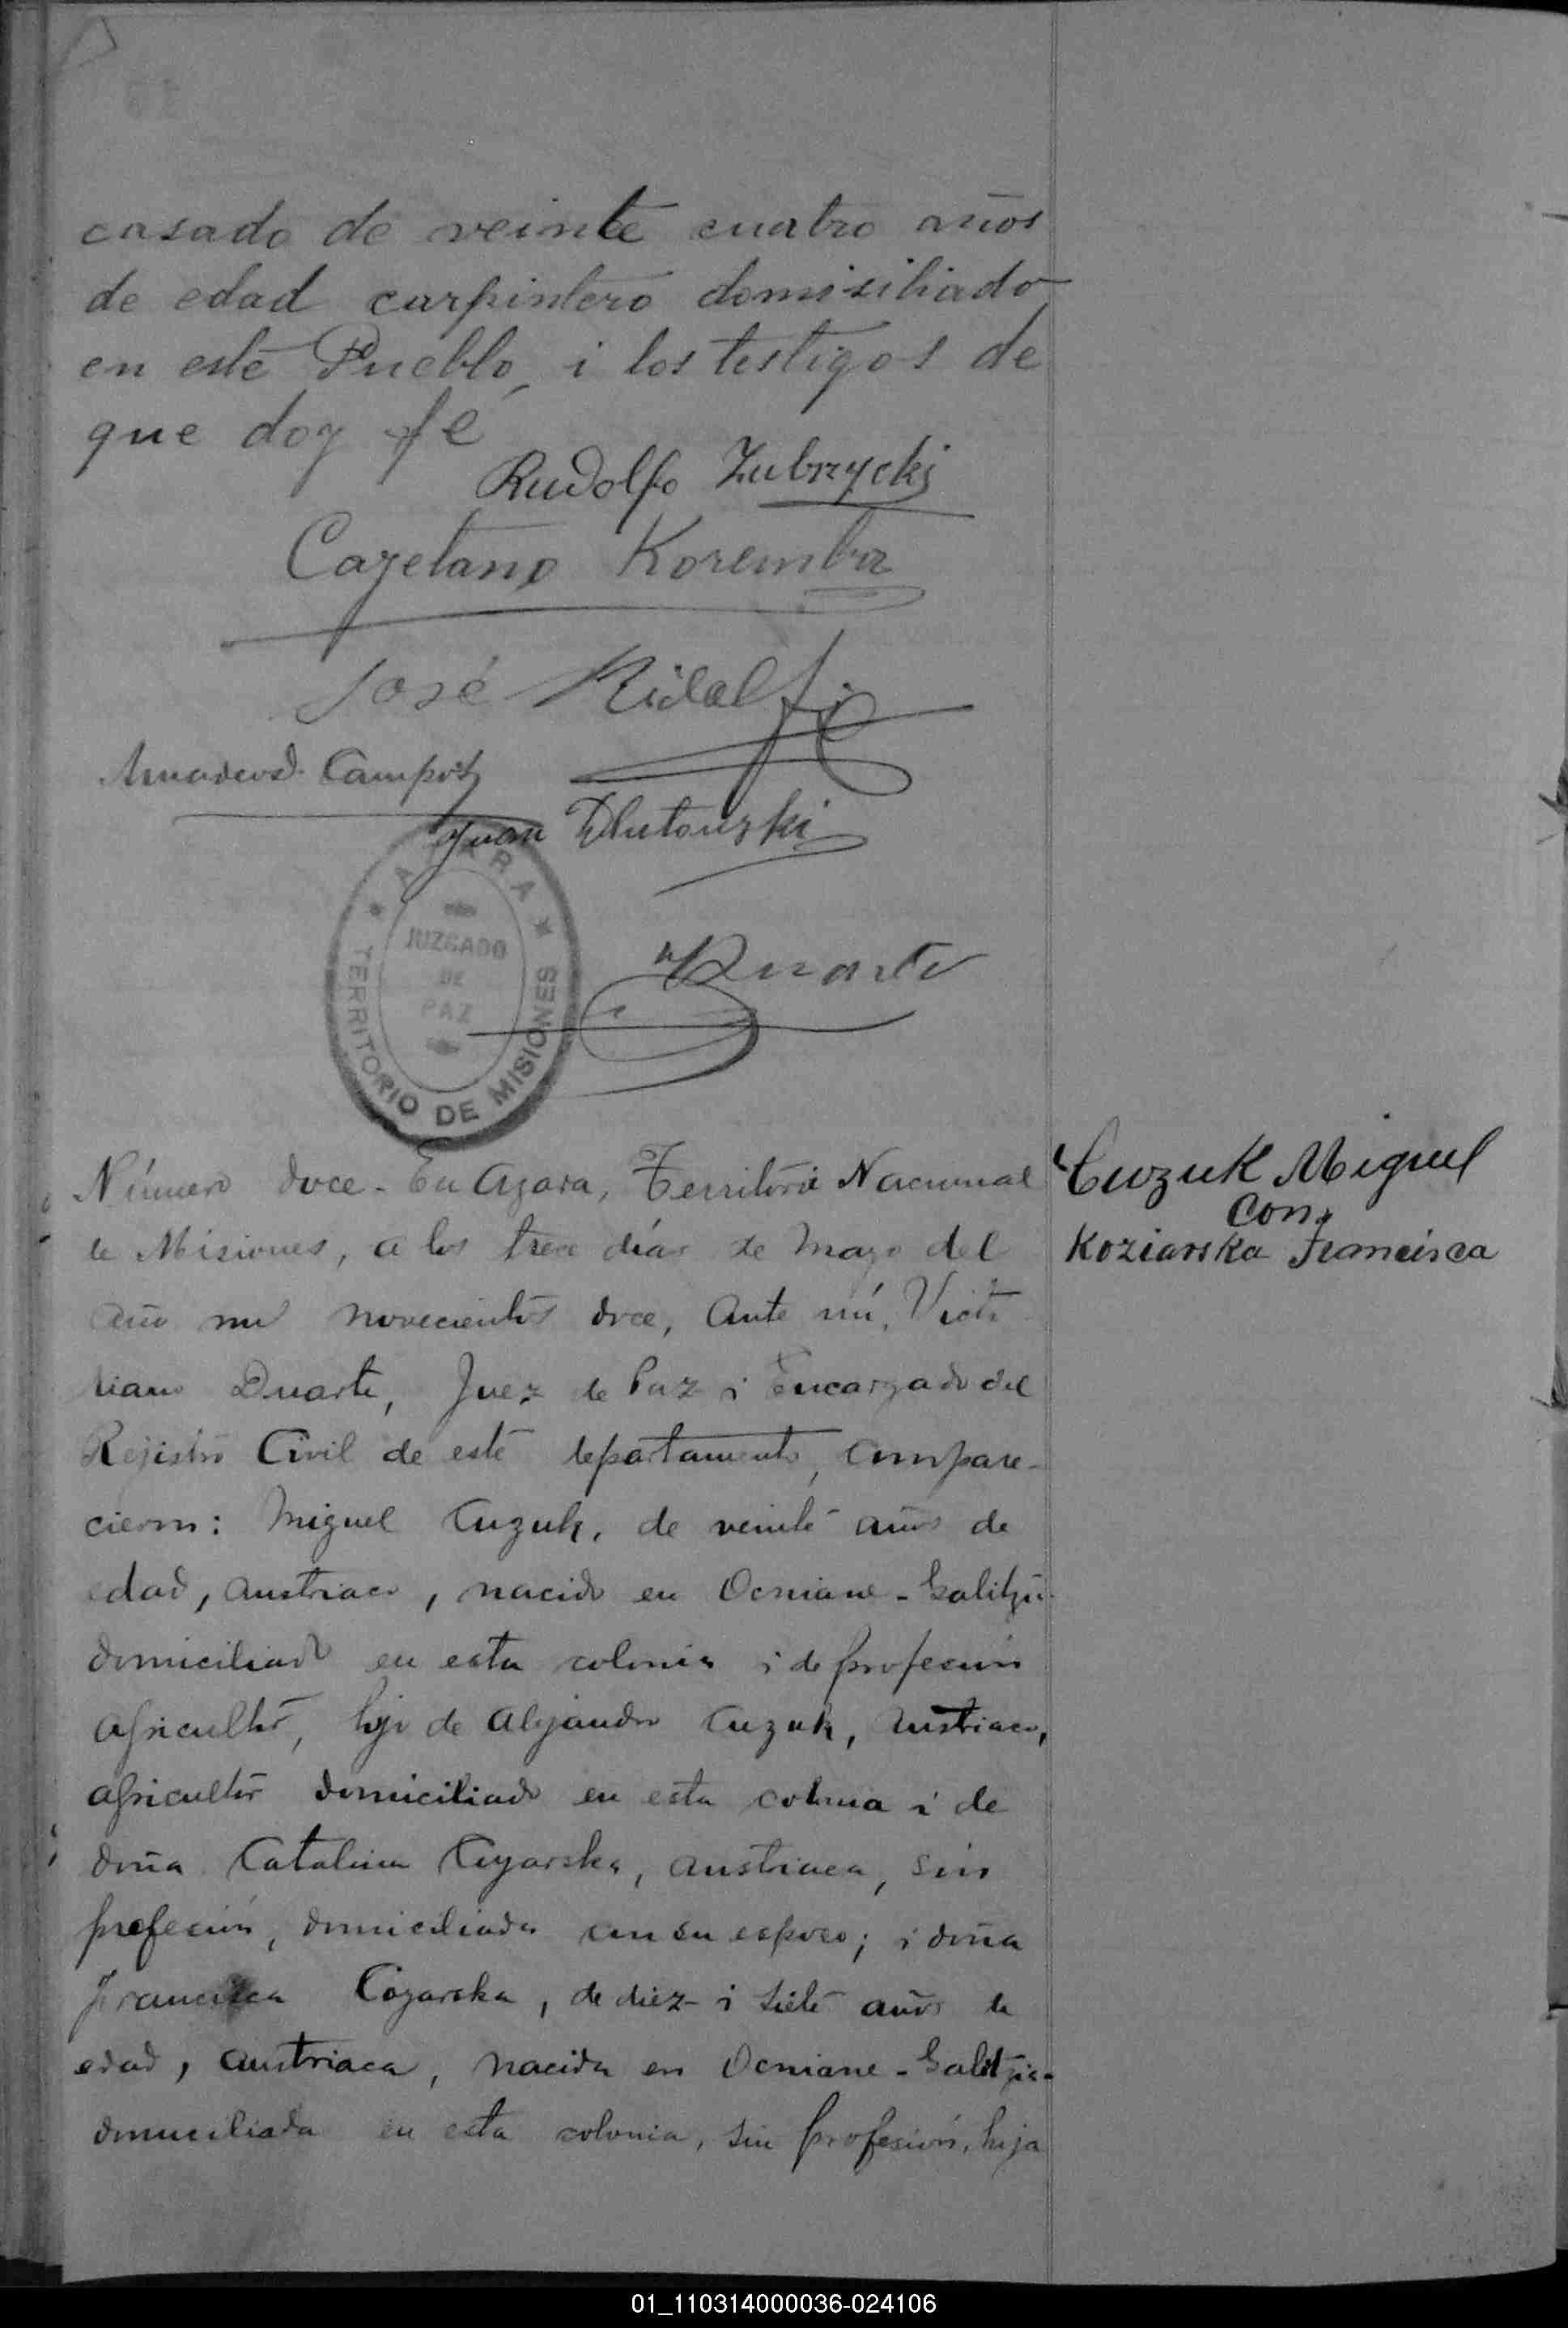 casado de veinte cuatro años
de edad carpintero domisiliado
en este Pueblo, i los testigos de
que doy fé
Rudolfo Zubrzycki
Cayetano Koremba
José Ridolfi
Amadeo d. Campos
Juan Dlutowski
Duarte
AZARA
JUZGADO
DE
PAZ
TERRITORIO DE MISIONES
Número doce. En Azara, Territorio Nacional
de Misiones, a los trece días de Mayo del
año mil novecientos doce, ante mí, Victo
riano Duarte, Juez de Paz i Encargado del
Rejistro Civil de este departamento, compare-
cieron: Miguel Cuzuk, de veinte años de
edad, austriaco, nacido en Ocniane - Galitzia
domiciliado en esta colonia i de profesión
agricultor, hijo de Alejandro Cuzuk, austriaco,
agricultor domiciliado en esta colonia i de
doña Catalina Cuyarska, austriaca, sin
profesión, domiciliada con su esposo; i doña
Francisca Cozarska, de diez i siete años de
edad, austriaca, nacida en Ocniane - Galitzia-
domiciliada en esta colonia, sin profesión, hija
Cuzuk Miguel
con
Koziarska Francisca
01_110314000036-024106